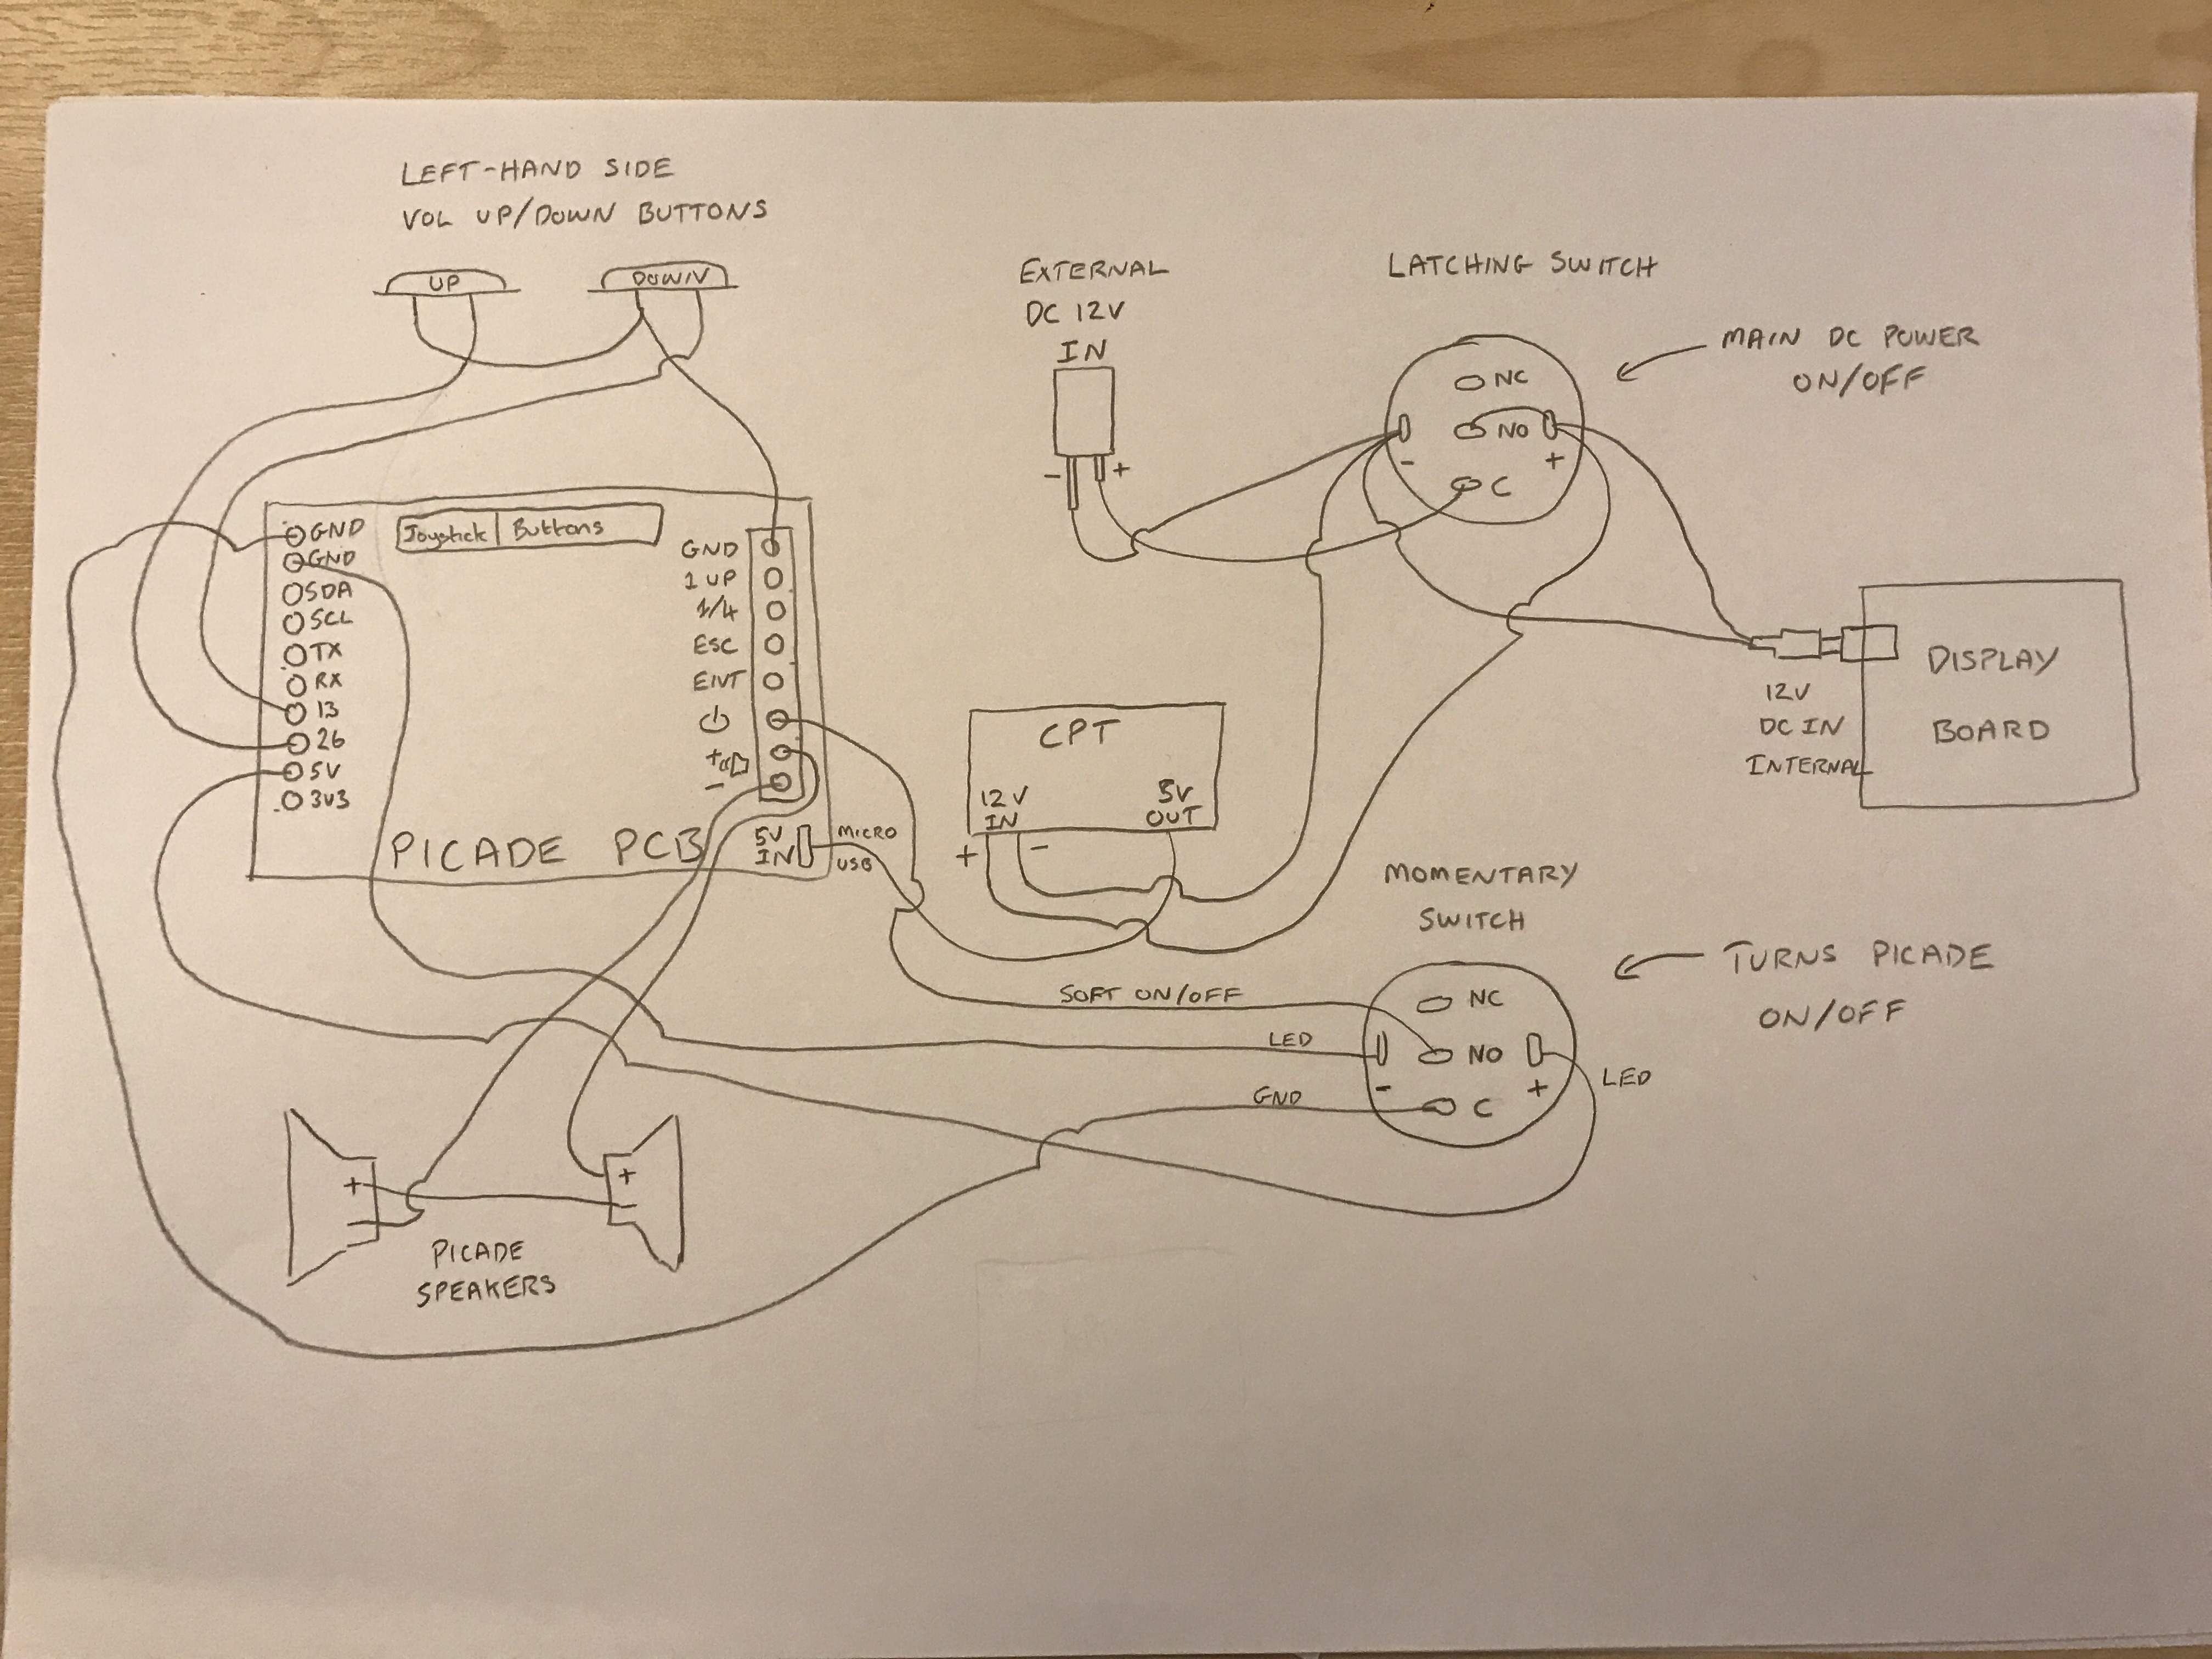 LEFT-HAND SIDE
VOL UP/DOWN BUTTONS
UP
DOWN
EXTERNAL
DC 12V
IN
- +
LATCHING SWITCH
MAIN DC POWER
ON/OFF
NC
NO
- +
C
Joystick | Buttons
GND
GND
SDA
SCL
TX
RX
13
26
5V
3V3
GND
1 UP
1/4
ESC
ENT
+
-
PICADE PCB
5V
IN
MICRO
USB
CPT
12V
IN
5V
OUT
+ -
12V
DC IN
INTERNAL
DISPLAY
BOARD
MOMENTARY
SWITCH
TURNS PICADE
ON/OFF
SOFT ON/OFF
LED
GND
NC
NO
- +
C
LED
+
-
+
-
PICADE
SPEAKERS